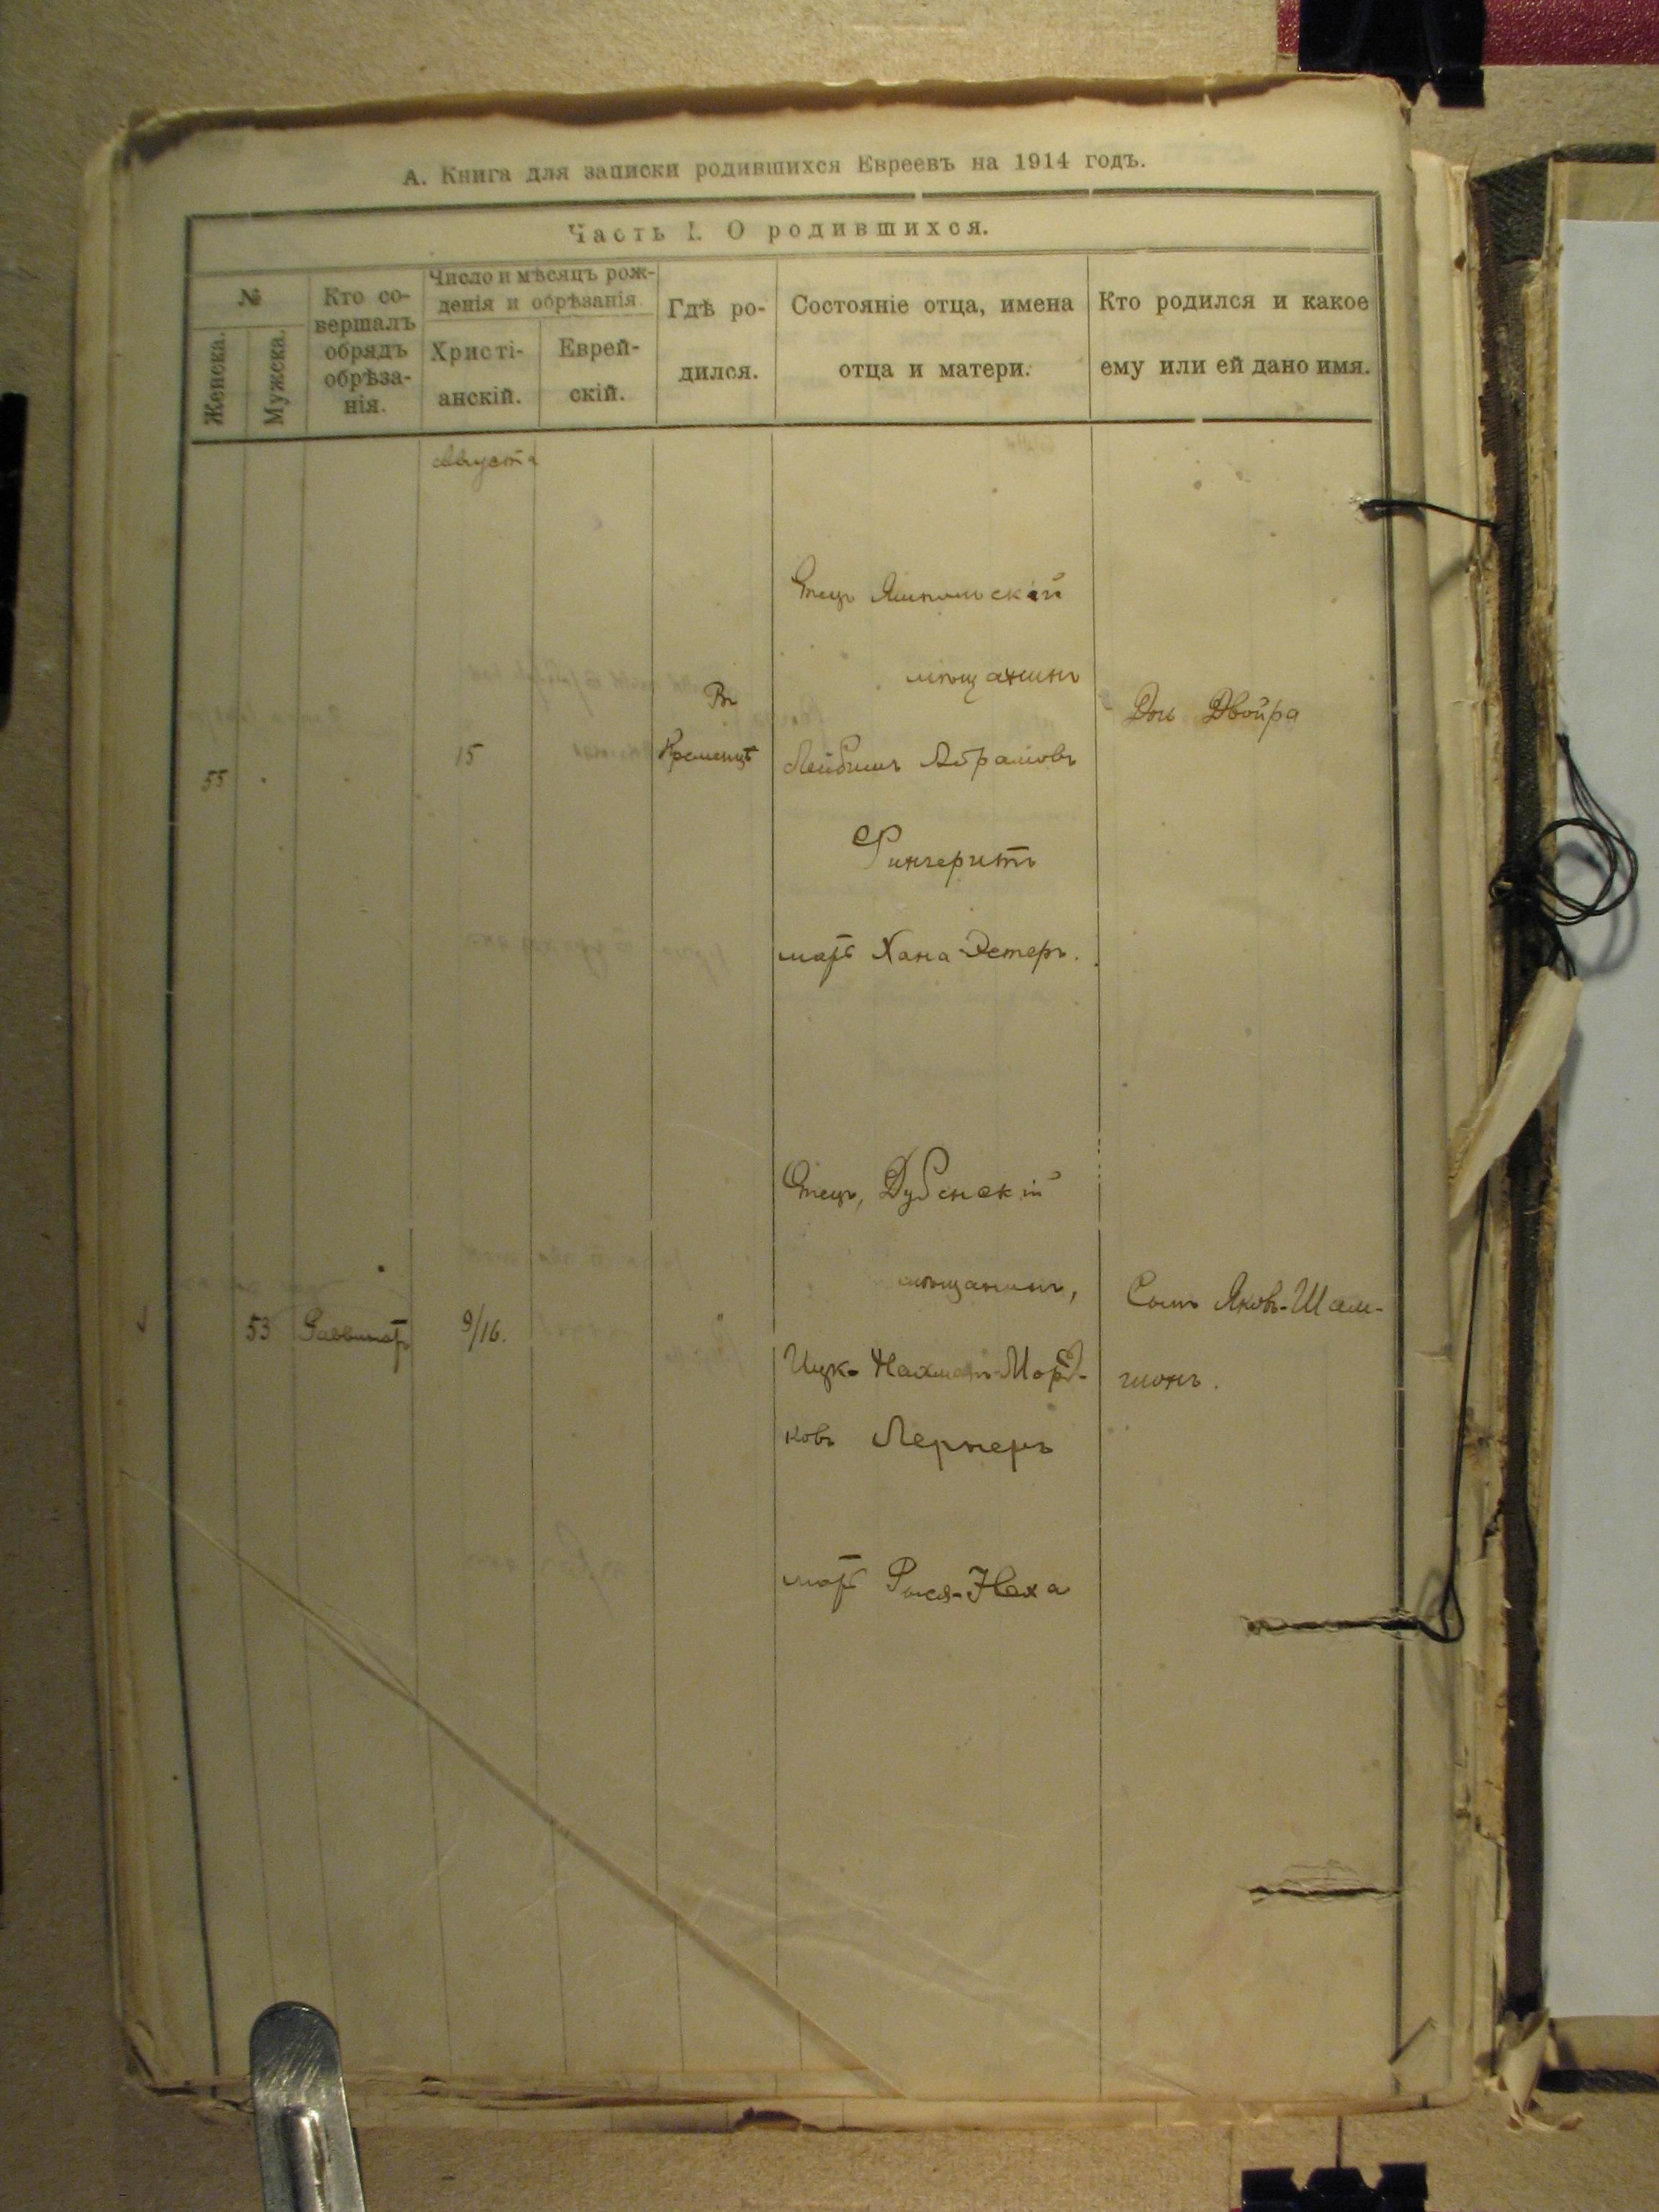 А. Книга для записки родившихся Евреевъ на 1914 годъ.
Часть I. О родившихся.
№
Женска.
Мужска.
Кто со-
вершалъ
обрядъ
обрѣза-
нія.
Число и мѣсяцъ рож-
денія и обрѣзанія.
Христі-
анскій.
Еврей-
скій.
Гдѣ ро-
дился.
Состояніе отца, имена
отца и матери.
Кто родился и какое
ему или ей дано имя.
Августа
55
15
Въ
Кременцѣ
Отецъ Ямпольскій
мѣщанинъ
Лейбишъ Абрамовъ
Фингеритъ
мать Хана-Эстеръ.
Дочь Двойра
53
Раввинатъ
9/16.
"
Отецъ, Дубенскій
мѣщанинъ,
Ицко Нахманъ-Морд-
ковъ Лернеръ
мать Рися-Неха
Сынъ Яковъ-Шлем-